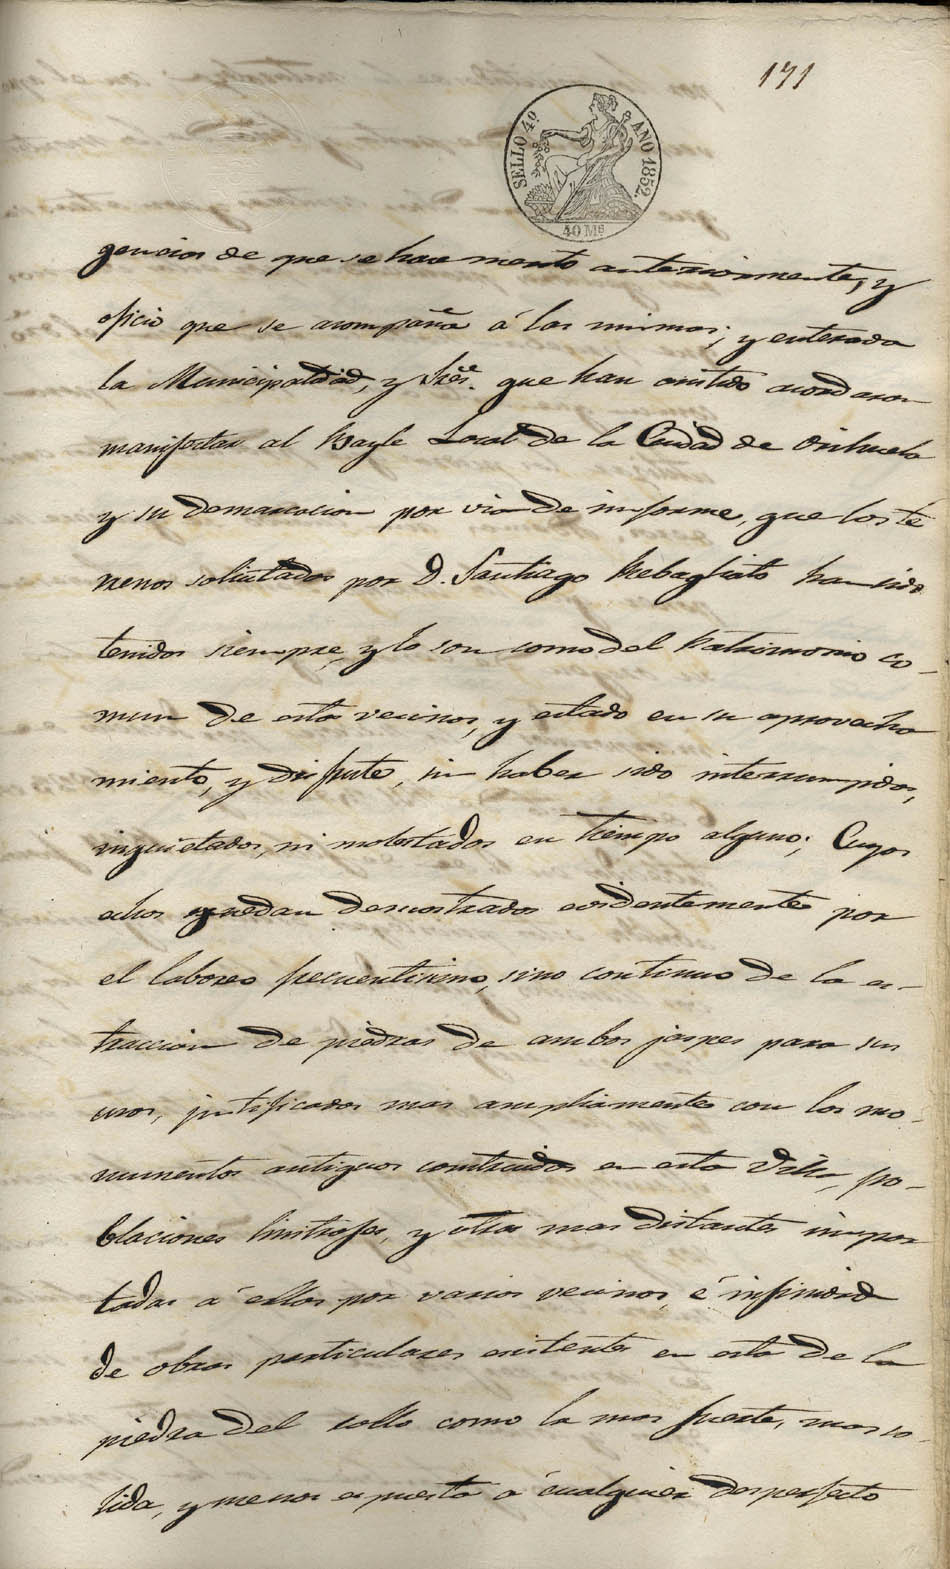 171
SELLO 4º AÑO 1852.
40 Ms
gencias de que se hace merito anteriormente, y
oficio que se acompaña á las mismas; y enterada
la Municipalidad, y Sres. que han asistido acordaron
manifestar al Bayle Local de la Ciudad de Orihuela
y su demarcacion por via de informe, que los te
rrenos solicitados por D. Santiago Rebagliato han sido
tenidos siempre, y lo son como del Patrimonio co-
mun de estos vecinos, y estado en su aprovecha
miento, y disfrute, sin haber sido interrumpidos,
inquietados, ni molestados en tiempo alguno; Cuyos
echos quedan demostrados evidentemente por
el laboreo frecuentisimo, sino continuo de la es-
traccion de piedras de ambos jaspes para sus
usos, justificados mas ampliamente con los mo-
numentos antiguos construidos en esta Villa, po-
blaciones limitrofes, y otras mas distantes impor
tadas á ellas por varios vecinos, é infinidad
de obras particulares existentes en esta de la
piedra del collo como la mas fuerte, mas so-
lida, y menos espuesta á cualquier desperfecto